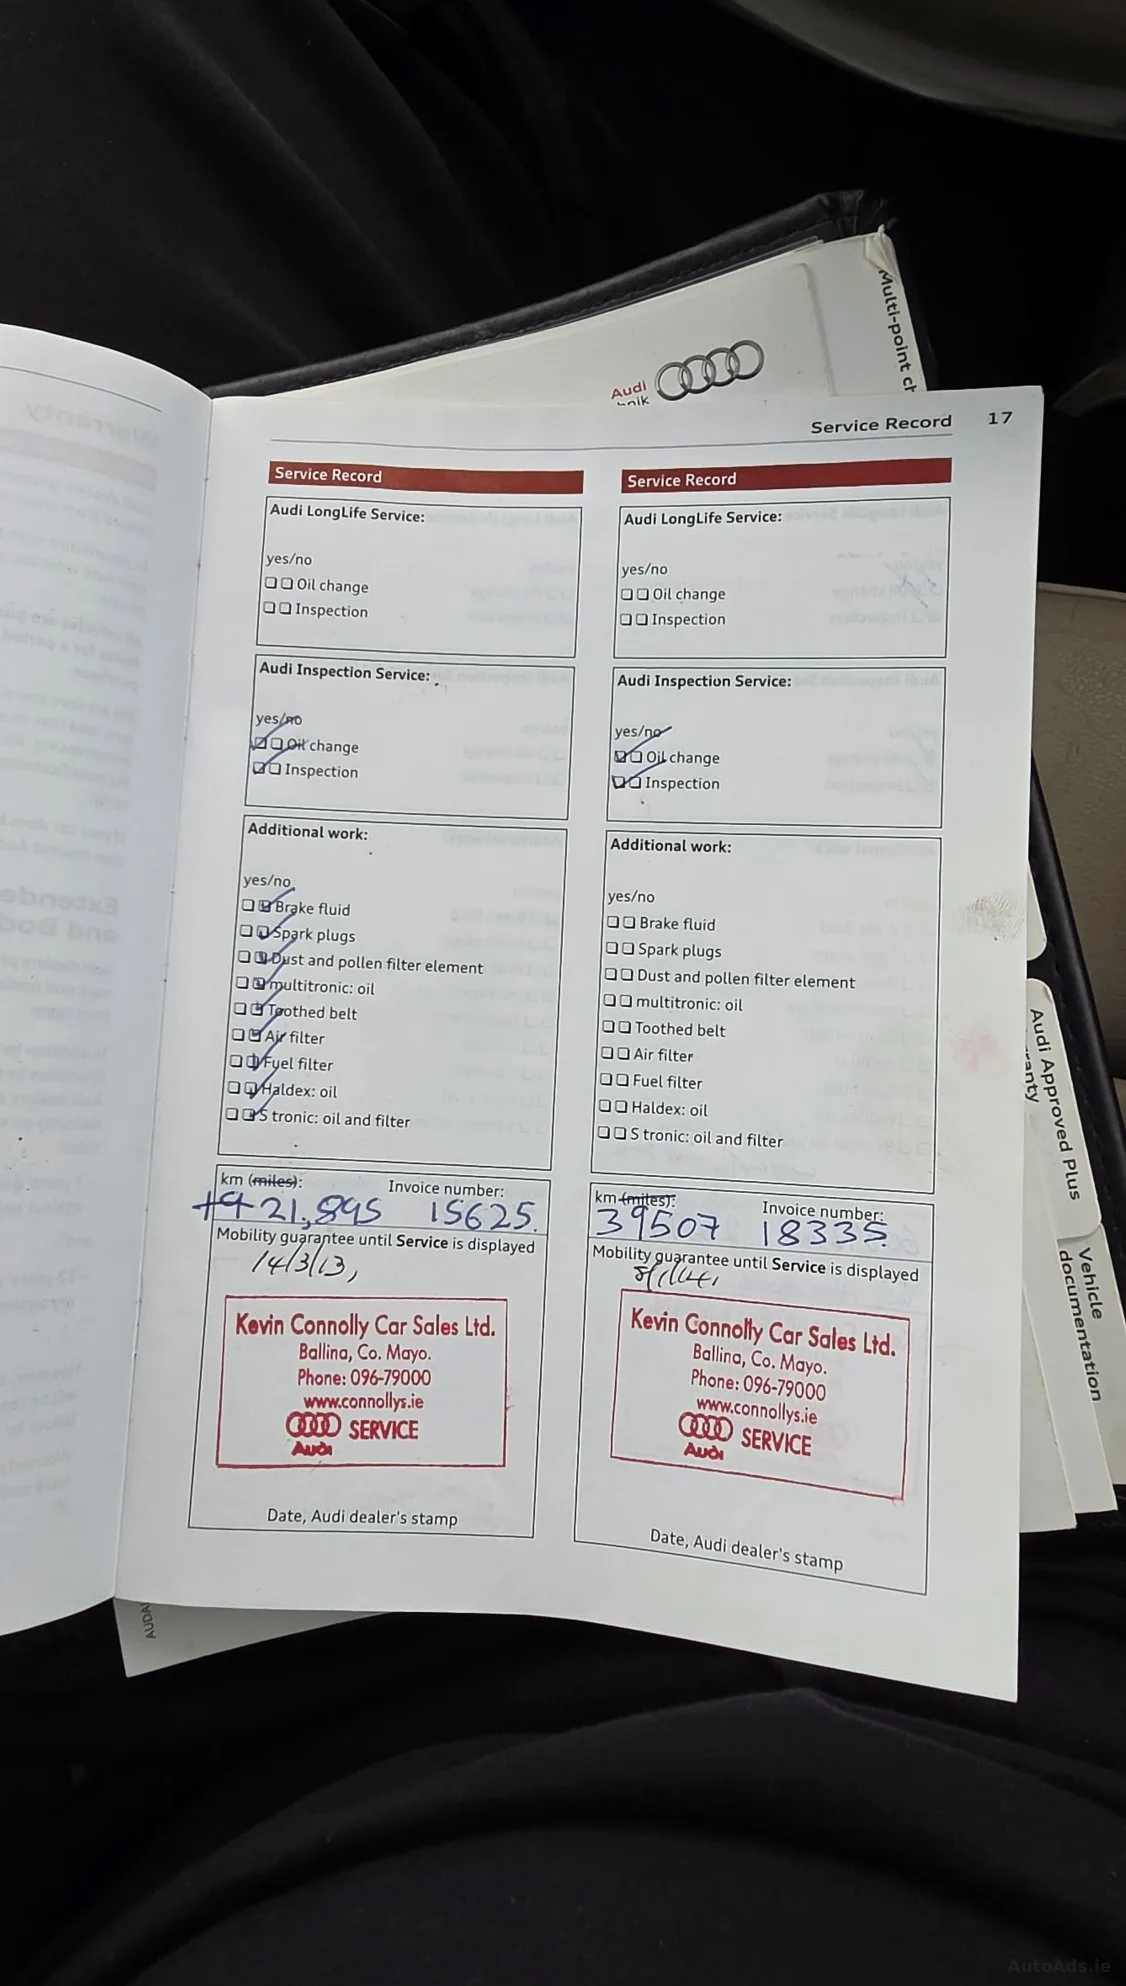 Multi-point ch
Audi
nik
Service Record 17
Service Record
Audi LongLife Service:
yes/no
Oil change
Inspection
Audi Inspection Service:
yes/no
Oil change
Inspection
Additional work:
yes/no
Brake fluid
Spark plugs
Dust and pollen filter element
multitronic: oil
Toothed belt
Air filter
Fuel filter
Haldex: oil
S tronic: oil and filter
km (miles): Invoice number:
21,895 15625.
Mobility guarantee until Service is displayed
14/3/13,
Kevin Connolly Car Sales Ltd.
Ballina, Co. Mayo.
Phone: 096-79000
www.connollys.ie
SERVICE
Audi
Date, Audi dealer's stamp
Service Record
Audi LongLife Service:
yes/no
Oil change
Inspection
Audi Inspection Service:
yes/no
Oil change
Inspection
Additional work:
yes/no
Brake fluid
Spark plugs
Dust and pollen filter element
multitronic: oil
Toothed belt
Air filter
Fuel filter
Haldex: oil
S tronic: oil and filter
km (miles): Invoice number:
39507 18335.
Mobility guarantee until Service is displayed
Kevin Connolly Car Sales Ltd.
Ballina, Co. Mayo.
Phone: 096-79000
www.connollys.ie
SERVICE
Audi
Date, Audi dealer's stamp
Audi Approved Plus
ranty
Vehicle
documentation
AUDA
AutoAds.ie